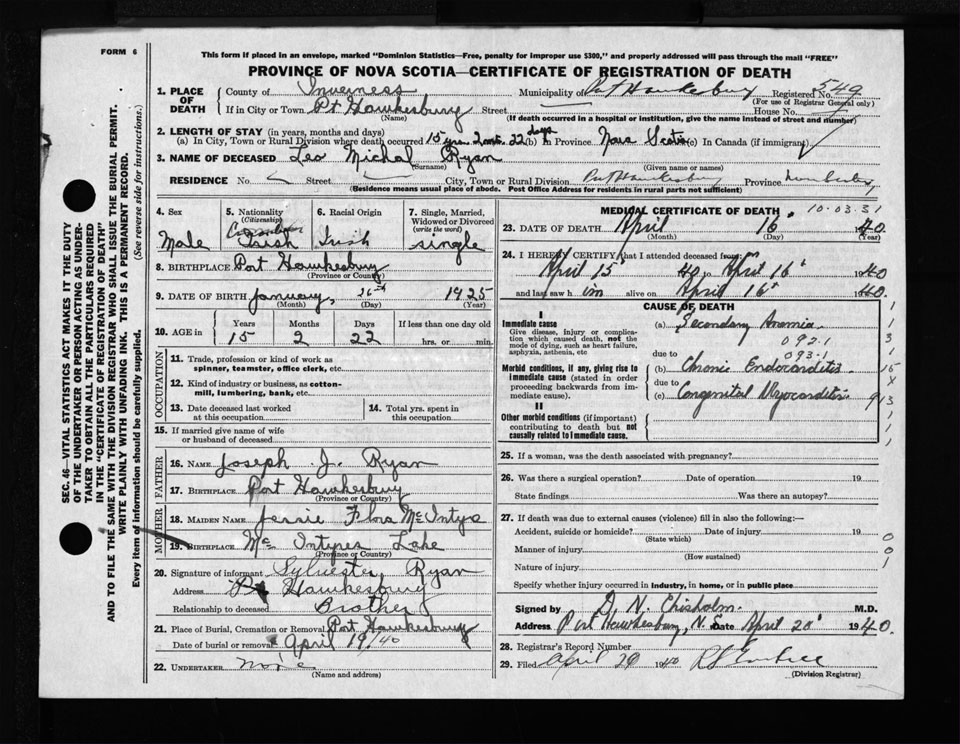 FORM 6
This form if placed in an envelope, marked "Dominion Statistics—Free, penalty for improper use $300," and properly addressed will pass through the mail "FREE"
PROVINCE OF NOVA SCOTIA—CERTIFICATE OF REGISTRATION OF DEATH
SEC. 46—VITAL STATISTICS ACT MAKES IT THE DUTY
OF THE UNDERTAKER OR PERSON ACTING AS UNDER-
TAKER TO OBTAIN ALL THE PARTICULARS REQUIRED
IN THE "CERTIFICATE OF REGISTRATION OF DEATH"
AND TO FILE THE SAME WITH THE DIVISION REGISTRAR WHO SHALL ISSUE THE BURIAL PERMIT.
WRITE PLAINLY WITH UNFADING INK. THIS IS A PERMANENT RECORD.
Every item of information should be carefully supplied. (See reverse side for instructions)
1. PLACE OF DEATH County of Inverness Municipality of Port Hawkesbury Registered No. 549
(For use of Registrar General only)
If in City or Town Pt Hawkesbury Street House No.
(Name) (If death occurred in a hospital or institution, give the name instead of street and number)
2. LENGTH OF STAY (in years, months and days)
(a) In City, Town or Rural Division where death occurred 15 yrs. 2 mts. 22 days (b) In Province Nova Scotia (c) In Canada (if immigrant)
3. NAME OF DECEASED Leo Michal Ryan
(Surname) (Given name or names)
RESIDENCE No. Street City, Town or Rural Division Port Hawkesbury Province
(Residence means usual place of abode. Post Office Address for residents in rural parts not sufficient)
4. Sex Male
5. Nationality (Citizenship) Canadian Irish
6. Racial Origin Irish
7. Single, Married, Widowed or Divorced (write the word) single
8. BIRTHPLACE Port Hawkesbury
(Province or Country)
9. DATE OF BIRTH January, 26th 1925
(Month) (Day) (Year)
10. AGE in Years 15 Months 2 Days 22 If less than one day old hrs. or min.
OCCUPATION
11. Trade, profession or kind of work as
spinner, teamster, office clerk, etc.
12. Kind of industry or business, as cotton-
mill, lumbering, bank, etc.
13. Date deceased last worked at this occupation
14. Total yrs. spent in this occupation
15. If married give name of wife
or husband of deceased
FATHER
16. NAME Joseph J. Ryan
17. BIRTHPLACE Port Hawkesbury
(Province or Country)
MOTHER
18. MAIDEN NAME Jessie Flora McIntye
19. BIRTHPLACE McIntyres Lake
(Province or Country)
20. Signature of informant Sylvester Ryan
Address Pt Hawkesbury
Relationship to deceased Brother
21. Place of Burial, Cremation or Removal Port Hawkesbury
Date of burial or removal April 19 1940
22. UNDERTAKER None
(Name and address)
MEDICAL CERTIFICATE OF DEATH 10.03.31
23. DATE OF DEATH April 16 1940
(Month) (Day) (Year)
24. I HEREBY CERTIFY that I attended deceased from
April 15 40 to April 16 1940
and last saw him alive on April 16 1940
CAUSE OF DEATH
I
Immediate cause
Give disease, injury or complica-
tion which caused death, not the
mode of dying, such as heart failure,
asphyxia, asthenia, etc
(a) Secondary Anemia
092.1
093.1
due to
Morbid conditions, if any, giving rise to
immediate cause (stated in order
proceeding backwards from im-
mediate cause).
(b) Chronic Endocarditis
due to
(c) Congenital Myocarditis
II
Other morbid conditions (if important)
contributing to death but not
causally related to immediate cause.
25. If a woman, was the death associated with pregnancy?
26. Was there a surgical operation? Date of operation 19
State findings Was there an autopsy?
27. If death was due to external causes (violence) fill in also the following:—
Accident, suicide or homicide? Date of injury 19
(State which)
Manner of injury
(How sustained)
Nature of injury
Specify whether injury occurred in industry, in home, or in public place
Signed by D. N. Chisholm M.D.
Address Port Hawkesbury, N.S. Date April 20 1940
28. Registrar's Record Number
29. Filed April 20 1940
(Division Registrar)